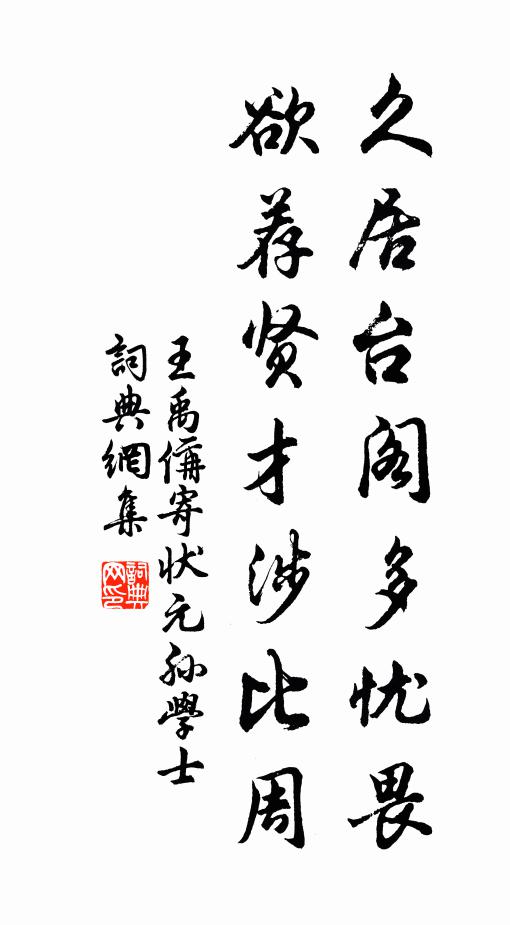 久居台阁多忧畏
欲荐贤才涉比周
王禹偁寄状元孙學士
詞典網集
詞典网印